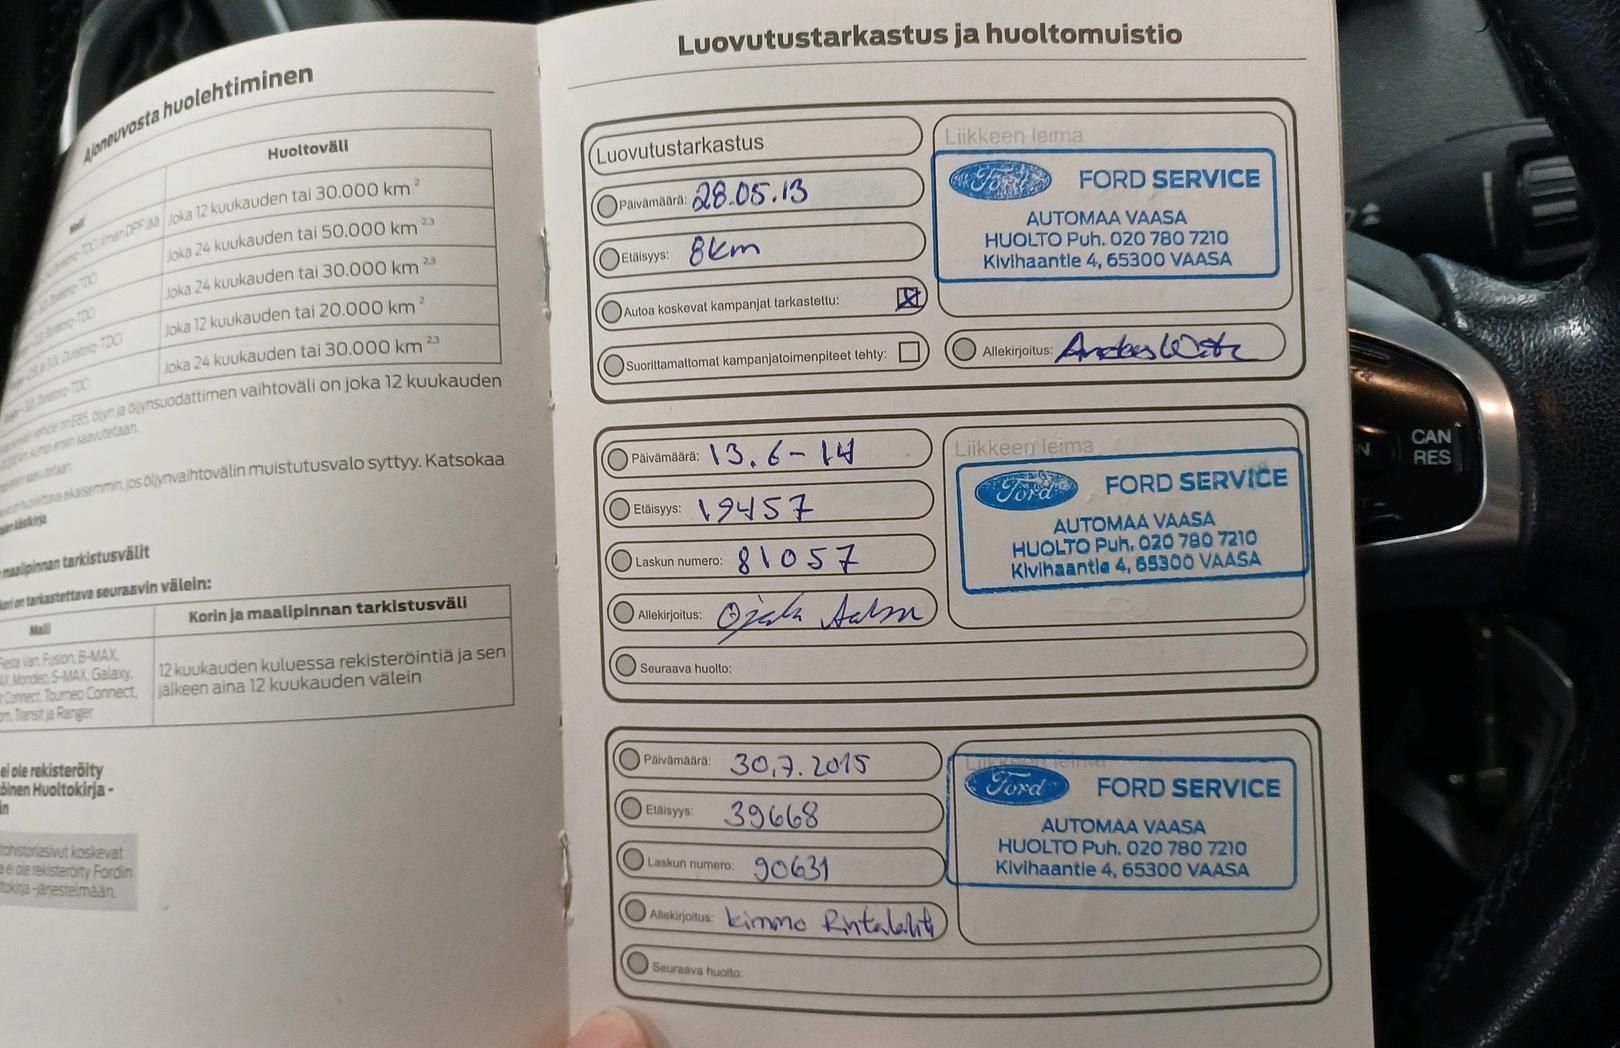 Ajoneuvosta huolehtiminen
Malli
Huoltoväli
Joka 12 kuukauden tai 30.000 km ²
Joka 24 kuukauden tai 50.000 km ²,³
Joka 24 kuukauden tai 30.000 km ²,³
Joka 12 kuukauden tai 20.000 km ²
Joka 24 kuukauden tai 30.000 km ²,³
öljyn ja öljynsuodattimen vaihtoväli on joka 12 kuukauden
jos öljynvaihtovälin muistutusvalo syttyy. Katsokaa
maalipinnan tarkistusvälit
on tarkastettava seuraavin välein:
Malli
Korin ja maalipinnan tarkistusväli
Fiesta Van, Fusion, B-MAX,
Mondeo, S-MAX, Galaxy,
Connect, Tourneo Connect,
Transit ja Ranger
12 kuukauden kuluessa rekisteröintiä ja sen
jälkeen aina 12 kuukauden välein
ei ole rekisteröity
Huoltokirja -
koskevat
ei ole rekisteröity Fordin
-järjestelmään.
Luovutustarkastus ja huoltomuistio
Luovutustarkastus
Päivämäärä: 28.05.13
Etäisyys: 8km
Autoa koskevat kampanjat tarkastettu:
Suorittamattomat kampanjatoimenpiteet tehty:
Liikkeen leima
Ford FORD SERVICE
AUTOMAA VAASA
HUOLTO Puh. 020 780 7210
Kivihaantie 4, 65300 VAASA
Allekirjoitus:
Päivämäärä: 13.6-14
Etäisyys: 19457
Laskun numero: 81057
Allekirjoitus:
Seuraava huolto:
Liikkeen leima
Ford FORD SERVICE
AUTOMAA VAASA
HUOLTO Puh. 020 780 7210
Kivihaantie 4, 65300 VAASA
Päivämäärä: 30.7.2015
Etäisyys: 39668
Laskun numero: 90631
Allekirjoitus: Kimmo Rintalahti
Seuraava huolto:
Liikkeen leima
Ford FORD SERVICE
AUTOMAA VAASA
HUOLTO Puh. 020 780 7210
Kivihaantie 4, 65300 VAASA
CAN
RES